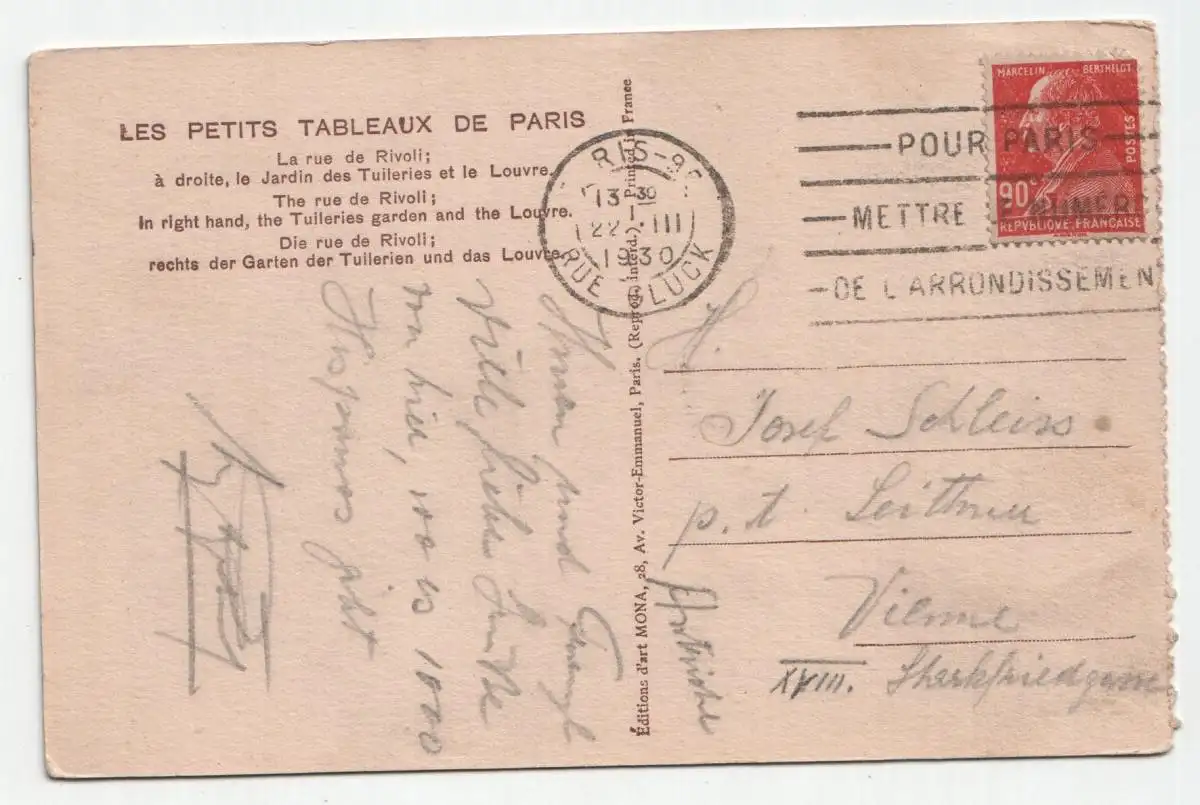 LES PETITS TABLEAUX DE PARIS
La rue de Rivoli;
à droite, le Jardin des Tuileries et le Louvre.
The rue de Rivoli;
In right hand, the Tuileries garden and the Louvre.
Die rue de Rivoli;
rechts der Garten der Tuilerien und das Louvre.
Ihnen und
viele liebe Grüße
von hier, wo es 1000
gibt
Éditions d'art MONA, 28, Av. Victor-Emmanuel, Paris. (Reprod. interd.) — Printed in France
RIS-9
13 30
22 III
1930
RUE GLUCK
POUR PARIS
METTRE NUMÉR
DE L'ARRONDISSEMEN
MARCELIN BERTHELOT
POSTES
90c
REPVBLIQVE FRANÇAISE
H.
Josef Schleiss
p. t. Leithner
Vienne
XVIII.
Autriche